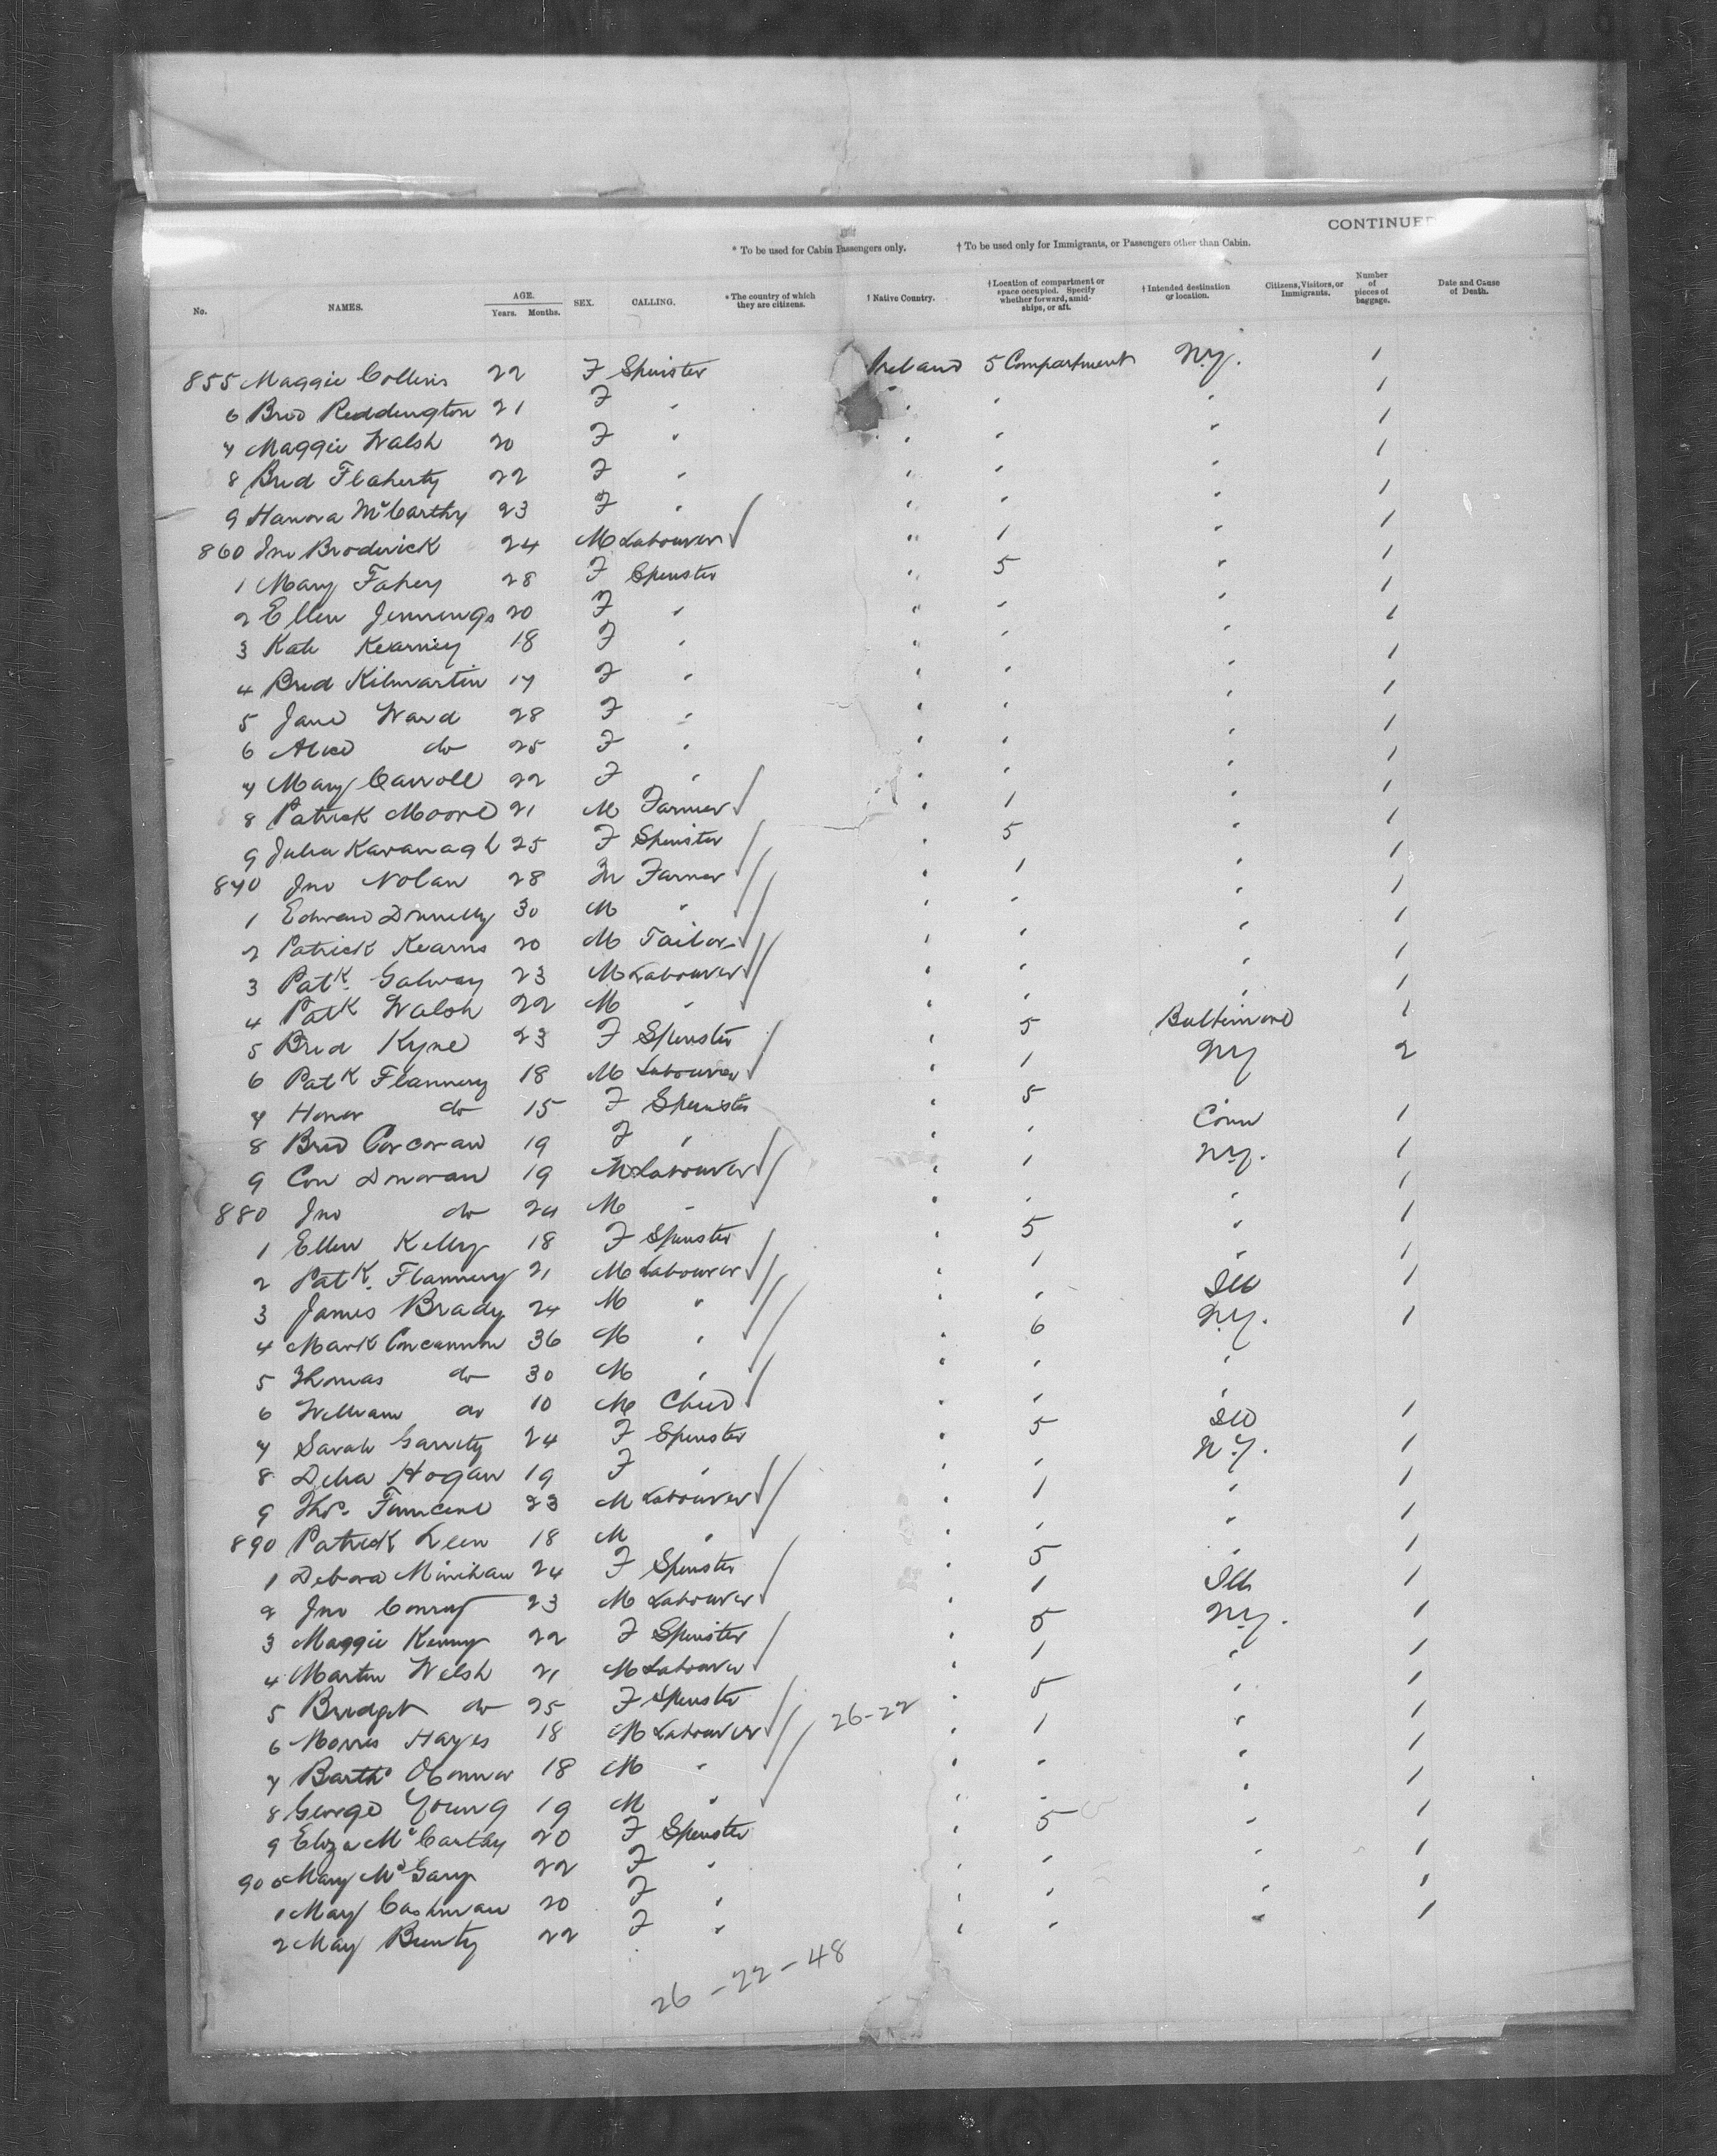 CONTINUED
* To be used for Cabin Passengers only. † To be used only for Immigrants, or Passengers other than Cabin.
No. NAMES. AGE. Years. Months. SEX. CALLING. * The country of which they are citizens. † Native Country. † Location of compartment or space occupied. Specify whether forward, amidships, or aft. † Intended destination or location. Citizens, Visitors, or Immigrants. Number of pieces of baggage. Date and Cause of Death.
855 Maggie Collins 22 F Spinster Ireland 5 Compartment N.Y. 1
6 Brid Reddington 21 F " " " " 1
7 Maggie Walsh 20 F " " " " 1
8 Brid Flaherty 22 F " " " " 1
9 Hanora McCarthy 23 F " " " " 1
860 Jno Broderick 24 M Labourer " 1 " 1
1 Mary Fahey 28 F Spinster " 5 " 1
2 Ellen Jennings 20 F " " " " 1
3 Kate Kearney 18 F " " " " 1
4 Brid Kilmartin 17 F " " " " 1
5 Jane Ward 28 F " " " " 1
6 Alice do 25 F " " " " 1
7 Mary Carroll 22 F " " " " 1
8 Patrick Moore 21 M Farmer " 1 " 1
9 Julia Kavanagh 25 F Spinster " 5 " 1
870 Jno Nolan 28 M Farmer " 1 " 1
1 Edward Donnelly 30 M " " " " 1
2 Patrick Kearns 20 M Tailor " " " 1
3 Patk. Galway 23 M Labourer " " " 1
4 Patk Walsh 22 M " " " " 1
5 Brid Kyne 23 F Spinster " 5 Baltimore 1
6 Patk Flannery 18 M Labourer " 1 NY 2
7 Honor do 15 F Spinster " 5
8 Brid Corcoran 19 F " " " Conn 1
9 Con Donovan 19 M Labourer " 1 N.Y. 1
880 Jno do 24 M " " " " 1
1 Ellen Kelly 18 F Spinster " 5 " 1
2 Patk. Flannery 21 M Labourer " 1 " 1
3 James Brady 24 M " " " Ill 1
4 Mark Concannon 36 M " " 6 N.Y. 1
5 Thomas do 30 M " " " "
6 William do 10 M Child " " "
7 Sarah Garrity 24 F Spinster " 5 Ill 1
8 Delia Hogan 19 F " " " N.Y. 1
9 Thos. 23 M Labourer " 1 " 1
890 Patrick Leen 18 M " " " " 1
1 Debora Minihan 24 F Spinster " 5 " 1
2 Jno Conroy 23 M Labourer " 1 Ill 1
3 Maggie Kenny 22 F Spinster " 5 N.Y. 1
4 Martin Welsh 21 M Labourer " 1 " 1
5 Bridget do 25 F Spinster " 5 " 1
6 Morris Hayes 18 M Labourer 26-22 " 1 " 1
7 Barth OConnor 18 M " " " " 1
8 George Young 19 M " " " " 1
9 Eliza McCarthy 20 F Spinster " 5 " 1
900 Mary McGary 22 F " " " " 1
1 Mary Cashman 20 F " " " " 1
2 May 22 F " " " " 1
26-22-48